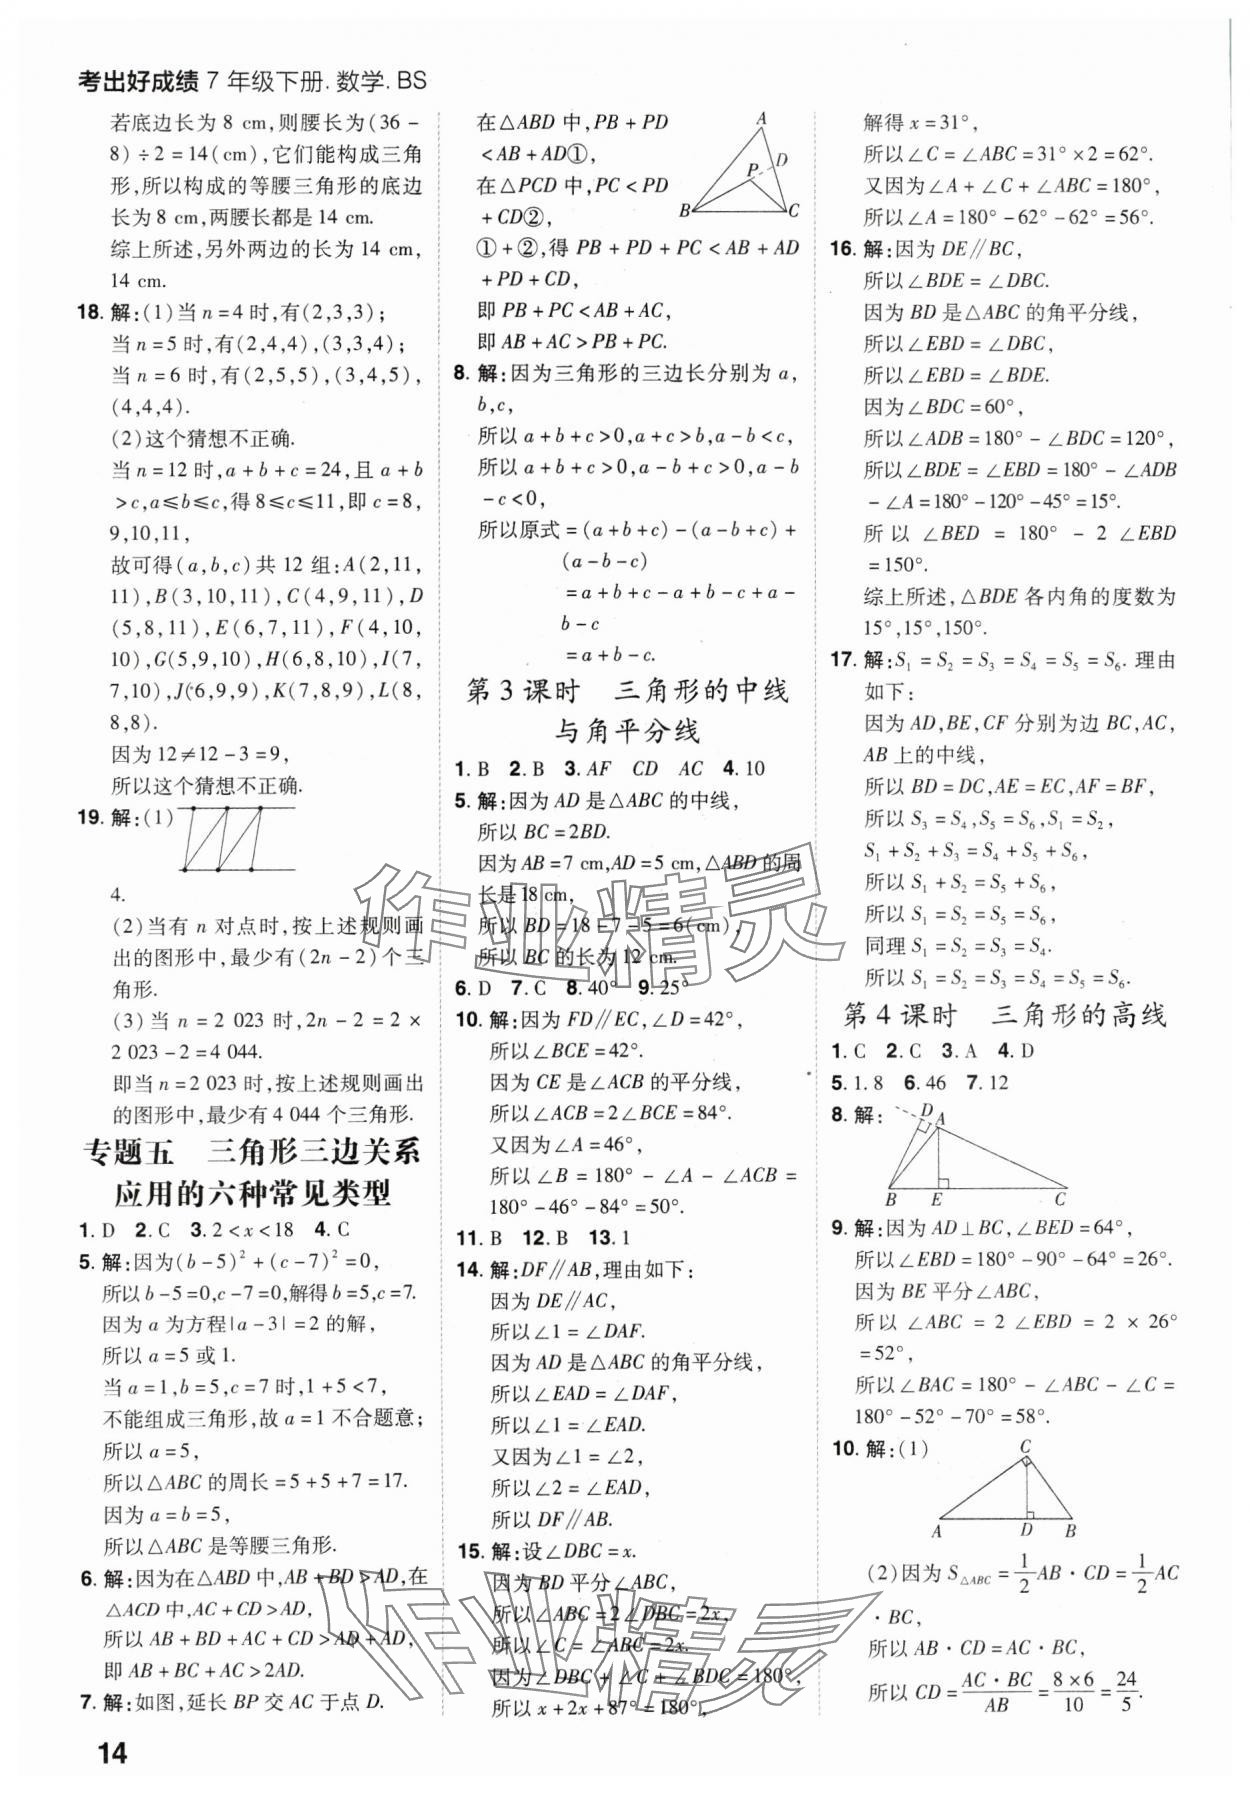 考出好成绩 7 年级下册. 数学. BS
若底边长为 8 cm,则腰长为(36-
8)÷2=14(cm),它们能构成三角
形,所以构成的等腰三角形的底边
长为 8 cm,两腰长都是 14 cm.
综上所述,另外两边的长为 14 cm,
14 cm.
18. 解:(1)当 n=4 时,有(2,3,3);
当 n=5 时,有(2,4,4),(3,3,4);
当 n=6 时,有(2,5,5),(3,4,5),
(4,4,4).
(2)这个猜想不正确.
当 n=12 时,a+b+c=24,且 a+b
>c,a≤b≤c,得 8≤c≤11,即 c=8,
9,10,11,
故可得(a,b,c)共 12 组:A(2,11,
11),B(3,10,11),C(4,9,11),D
(5,8,11),E(6,7,11),F(4,10,
10),G(5,9,10),H(6,8,10),I(7,
7,10),J(6,9,9),K(7,8,9),L(8,
8,8).
因为 12≠12-3=9,
所以这个猜想不正确.
19. 解:(1)
4.
(2)当有 n 对点时,按上述规则画
出的图形中,最少有(2n-2)个三
角形.
(3)当 n=2 023 时,2n-2=2×
2 023-2=4 044.
即当 n=2 023 时,按上述规则画出
的图形中,最少有 4 044 个三角形.
专题五 三角形三边关系
应用的六种常见类型
1. D 2. C 3. 2<x<18 4. C
5. 解:因为(b-5)²+(c-7)²=0,
所以 b-5=0,c-7=0,解得 b=5,c=7.
因为 a 为方程|a-3|=2 的解,
所以 a=5 或 1.
当 a=1,b=5,c=7 时,1+5<7,
不能组成三角形,故 a=1 不合题意;
所以 a=5,
所以△ABC 的周长=5+5+7=17.
因为 a=b=5,
所以△ABC 是等腰三角形.
6. 解:因为在△ABD 中,AB+BD>AD,在
△ACD 中,AC+CD>AD,
所以 AB+BD+AC+CD>AD+AD,
即 AB+BC+AC>2AD.
7. 解:如图,延长 BP 交 AC 于点 D.
14
在△ABD 中,PB+PD
<AB+AD①,
在△PCD 中,PC<PD
+CD②,
A
D
P
B
C
①+②,得 PB+PD+PC<AB+AD
+PD+CD,
即 PB+PC<AB+AC,
即 AB+AC>PB+PC.
8. 解:因为三角形的三边长分别为 a,
b,c,
所以 a+b+c>0,a+c>b,a-b<c,
所以 a+b+c>0,a-b+c>0,a-b
-c<0,
所以原式=(a+b+c)-(a-b+c)+
(a-b-c)
=a+b+c-a+b-c+a-
b-c
=a+b-c.
第 3 课时 三角形的中线
与角平分线
1. B 2. B 3. AF CD AC 4. 10
5. 解:因为 AD 是△ABC 的中线,
所以 BC=2BD.
因为 AB=7 cm,AD=5 cm,△ABD 的周
长是 18 cm,
所以 BD=18-7-5=6(cm),
所以 BC 的长为 12 cm.
6. D 7. C 8. 40° 9. 25°
10. 解:因为 FD∥EC,∠D=42°,
所以∠BCE=42°.
因为 CE 是∠ACB 的平分线,
所以∠ACB=2∠BCE=84°.
又因为∠A=46°,
所以∠B=180°-∠A-∠ACB=
180°-46°-84°=50°.
11. B 12. B 13. 1
14. 解:DF∥AB,理由如下:
因为 DE∥AC,
所以∠1=∠DAF.
因为 AD 是△ABC 的角平分线,
所以∠EAD=∠DAF,
所以∠1=∠EAD.
又因为∠1=∠2,
所以∠2=∠EAD,
所以 DF∥AB.
15. 解:设∠DBC=x.
因为 BD 平分∠ABC,
所以∠ABC=2∠DBC=2x,
所以∠C=∠ABC=2x.
因为∠DBC+∠C+∠BDC=180°,
所以 x+2x+87°=180°,
解得 x=31°,
所以∠C=∠ABC=31°×2=62°.
又因为∠A+∠C+∠ABC=180°,
所以∠A=180°-62°-62°=56°.
16. 解:因为 DE∥BC,
所以∠BDE=∠DBC.
因为 BD 是△ABC 的角平分线,
所以∠EBD=∠DBC,
所以∠EBD=∠BDE.
因为∠BDC=60°,
所以∠ADB=180°-∠BDC=120°,
所以∠BDE=∠EBD=180°-∠ADB
-∠A=180°-120°-45°=15°.
所以∠BED=180°-2∠EBD
=150°.
综上所述,△BDE 各内角的度数为
15°,15°,150°.
17. 解:S₁=S₂=S₃=S₄=S₅=S₆. 理由
如下:
因为 AD,BE,CF 分别为边 BC,AC,
AB 上的中线,
所以 BD=DC,AE=EC,AF=BF,
所以 S₃=S₄,S₅=S₆,S₁=S₂,
S₁+S₂+S₃=S₄+S₅+S₆,
所以 S₁+S₂=S₅+S₆,
所以 S₁=S₂=S₅=S₆.
同理 S₁=S₂=S₃=S₄.
所以 S₁=S₂=S₃=S₄=S₅=S₆.
第 4 课时 三角形的高线
1. C 2. C 3. A 4. D
5. 1.8 6. 46 7. 12
8. 解:
D
A
B
E
C
9. 解:因为 AD⊥BC,∠BED=64°,
所以∠EBD=180°-90°-64°=26°.
因为 BE 平分∠ABC,
所以∠ABC=2∠EBD=2×26°
=52°,
所以∠BAC=180°-∠ABC-∠C=
180°-52°-70°=58°.
10. 解:(1)
C
A
D
B
(2)因为 S△ABC=1/2AB·CD=1/2AC
·BC,
所以 AB·CD=AC·BC,
所以 CD=AC·BC/AB=8×6/10=24/5.
作业精灵
作业精灵